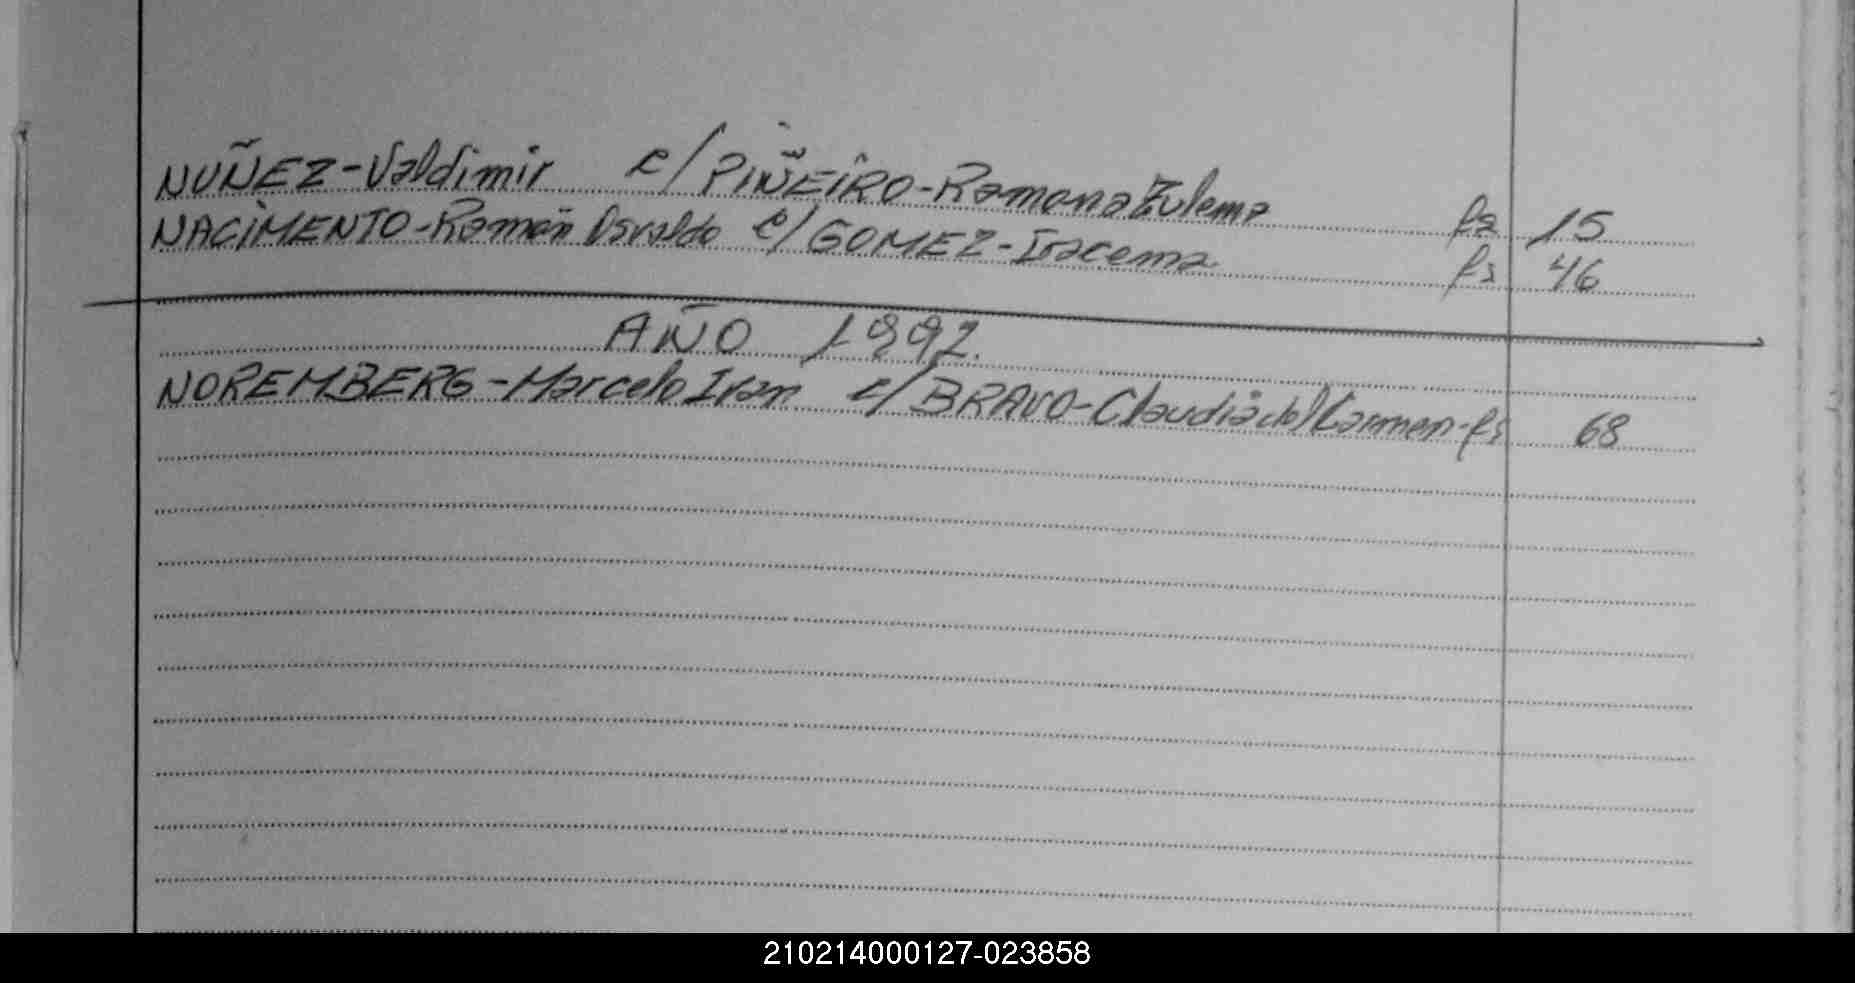 NUÑEZ-Valdimir c/ PIÑEIRO-Ramona Zulema fs 15
NACIMENTO-Ramón Osvaldo c/ GOMEZ-Iracema fs 46
AÑO 1992.
NOREMBERG-Marcelo Ivan c/ BRAVO-Claudia del Carmen-fs 68
210214000127-023858